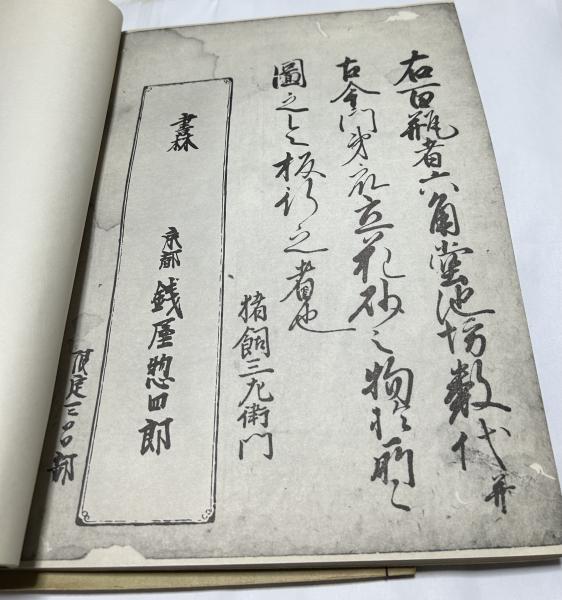 右百瓶者六角堂池坊数代并
古今門弟衆立花砂之物於所々
圖之令板行之者也
猪飼三左衛門
書林
京都 銭屋惣四郎
限定三
部